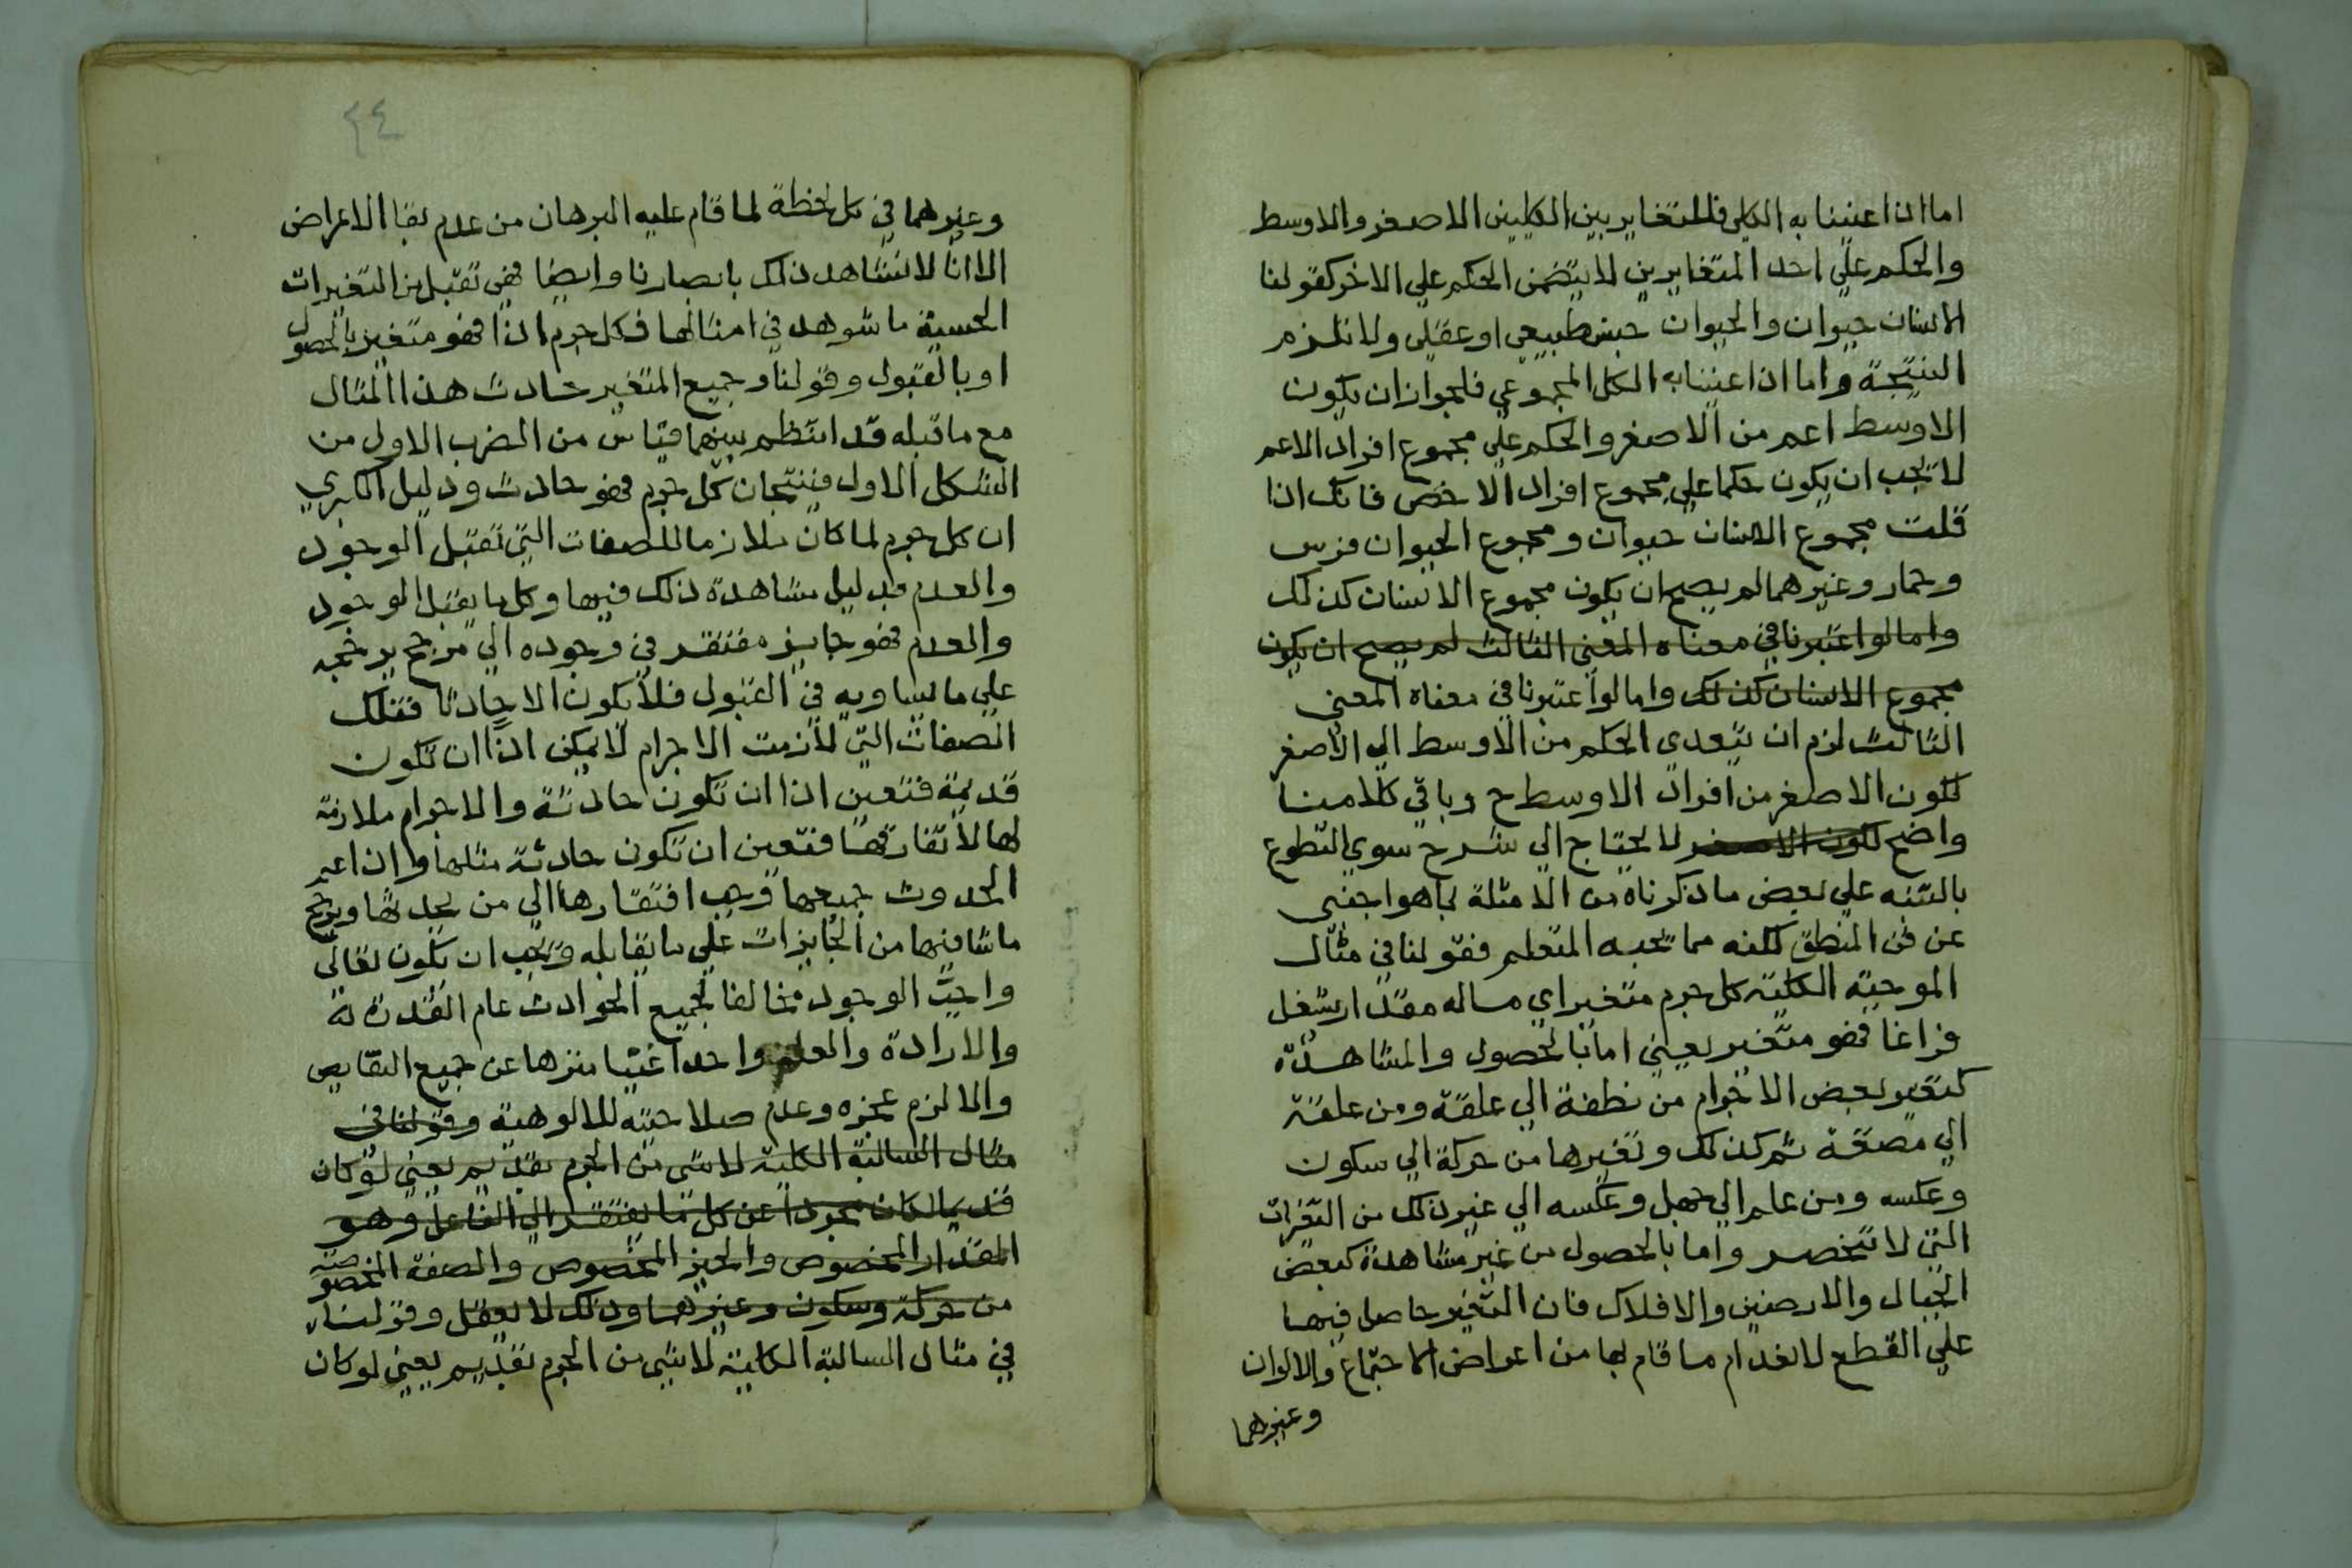 اما اذا اعنينا به الكلي فللتغاير بين الكليين الاصغر والاوسط
والحكم علي احد المتغايرين لا يتضمن الحكم علي الاخر كقولنا
الانسان حيوان والحيوان جنس طبيعي او عقلي ولا تلزم
النتيجة واما اذا اعنينا به الكل المجموعي فلجواز ان يكون
الاوسط اعم من الاصغر والحكم علي مجموع افراد الاعم
لا يجب ان يكون حكما علي مجموع افراد الاخص فانك اذا
قلت مجموع الانسان حيوان ومجموع الحيوان فرس
وحمار وغيرهما لم يصح ان يكون مجموع الانسان كذلك
واما لو اعتبرنا في معناه المعني الثالث لم يصح ان يكون
مجموع الانسان كذلك واما لو اعتبرنا في معناه المعني
الثالث لزم ان يتعدي الحكم من الاوسط الي الاصغر
لكون الاصغر من افراد الاوسط ح وباقي كلامنا
واضح لكون الاصغر لا يحتاج الي شرح سوي التطوع
بالتنبه علي بعض ما ذكرناه من الامثلة بما هو اجنبي
عن فن المنطق لكنه مما يحبه المتعلم فقولنا في مثال
الموجبة الكلية كل جرم متغير اي ماله مقدار يشغل
فراغا فهو متغير يعني اما بالحصول والمشاهدة
كتغير بعض الاجرام من نطفة الي علقة ومن علقة
الي مضغة ثم كذلك وتغيرها من حركة الي سكون
وعكسه ومن علم الي جهل وعكسه الي غير ذلك من التغيرات
التي لا تنحصر واما بالحصول من غير مشاهدة كبعض
الجبال والارضين والافلاك فان التغير حاصل فيها
علي القطع لانعدام ما قام بها من اعراض الاجتماع والالوان
وغيرهما
٤٤
وغيرهما في كل لحظة لما قام عليه البرهان من عدم بقا الاعراض
الا انا لا نشاهد ذلك بابصارنا وايضا فهي تقبل من التغيرات
الحسية ما شوهد في امثالها فكل جرم اذا فهو متغير بالحصول
او بالقبول وقولنا وجميع المتغير حادث هذا المثال
مع ما قبله قد انتظم بينهما قياس من الضرب الاول من
الشكل الاول فينتجان كل جرم فهو حادث ودليل الكبري
ان كل جرم لما كان ملازما للصفات التي تقبل الوجود
والعدم بدليل مشاهدة ذلك فيها وكل ما يقبل الوجود
والعدم فهو جايز مفتقر في وجوده الي مرجح يرجحه
علي ما يساويه في القبول فلا يكون الا حادثا فتلك
الصفات التي لازمت الاجرام لا يمكن اذا ان تكون
قديمة فتعين اذا ان تكون حادثة والاجرام ملازمة
لها لا تفارقها فتعين ان تكون حادثة مثلها واذا عم
الحدوث جميعها وجب افتقارها الي من يحدثها ويرجح
ما شا فيها من الجايزات علي ما يقابله ويجب ان يكون تعالي
واجب الوجود مخالفا لجميع الحوادث عام القدرة
والارادة والعلم واحدا غنيا منزها عن جميع النقايص
والا لزم عجزه وعدم صلاحيته للالوهية وقولنا في
مثال السالبة الكلية لا شي من الجرم بقديم يعني لو كان
قديما لكان مجردا عن كل ما يفتقر الي الفاعل وهو
المقدار المخصوص والحيز المخصوص والصفة المخصوصة
من حركة وسكون وغيرهما وذلك لا يعقل وقولنا
في مثال السالبة الكلية لا شي من الجرم بقديم يعني لو كان